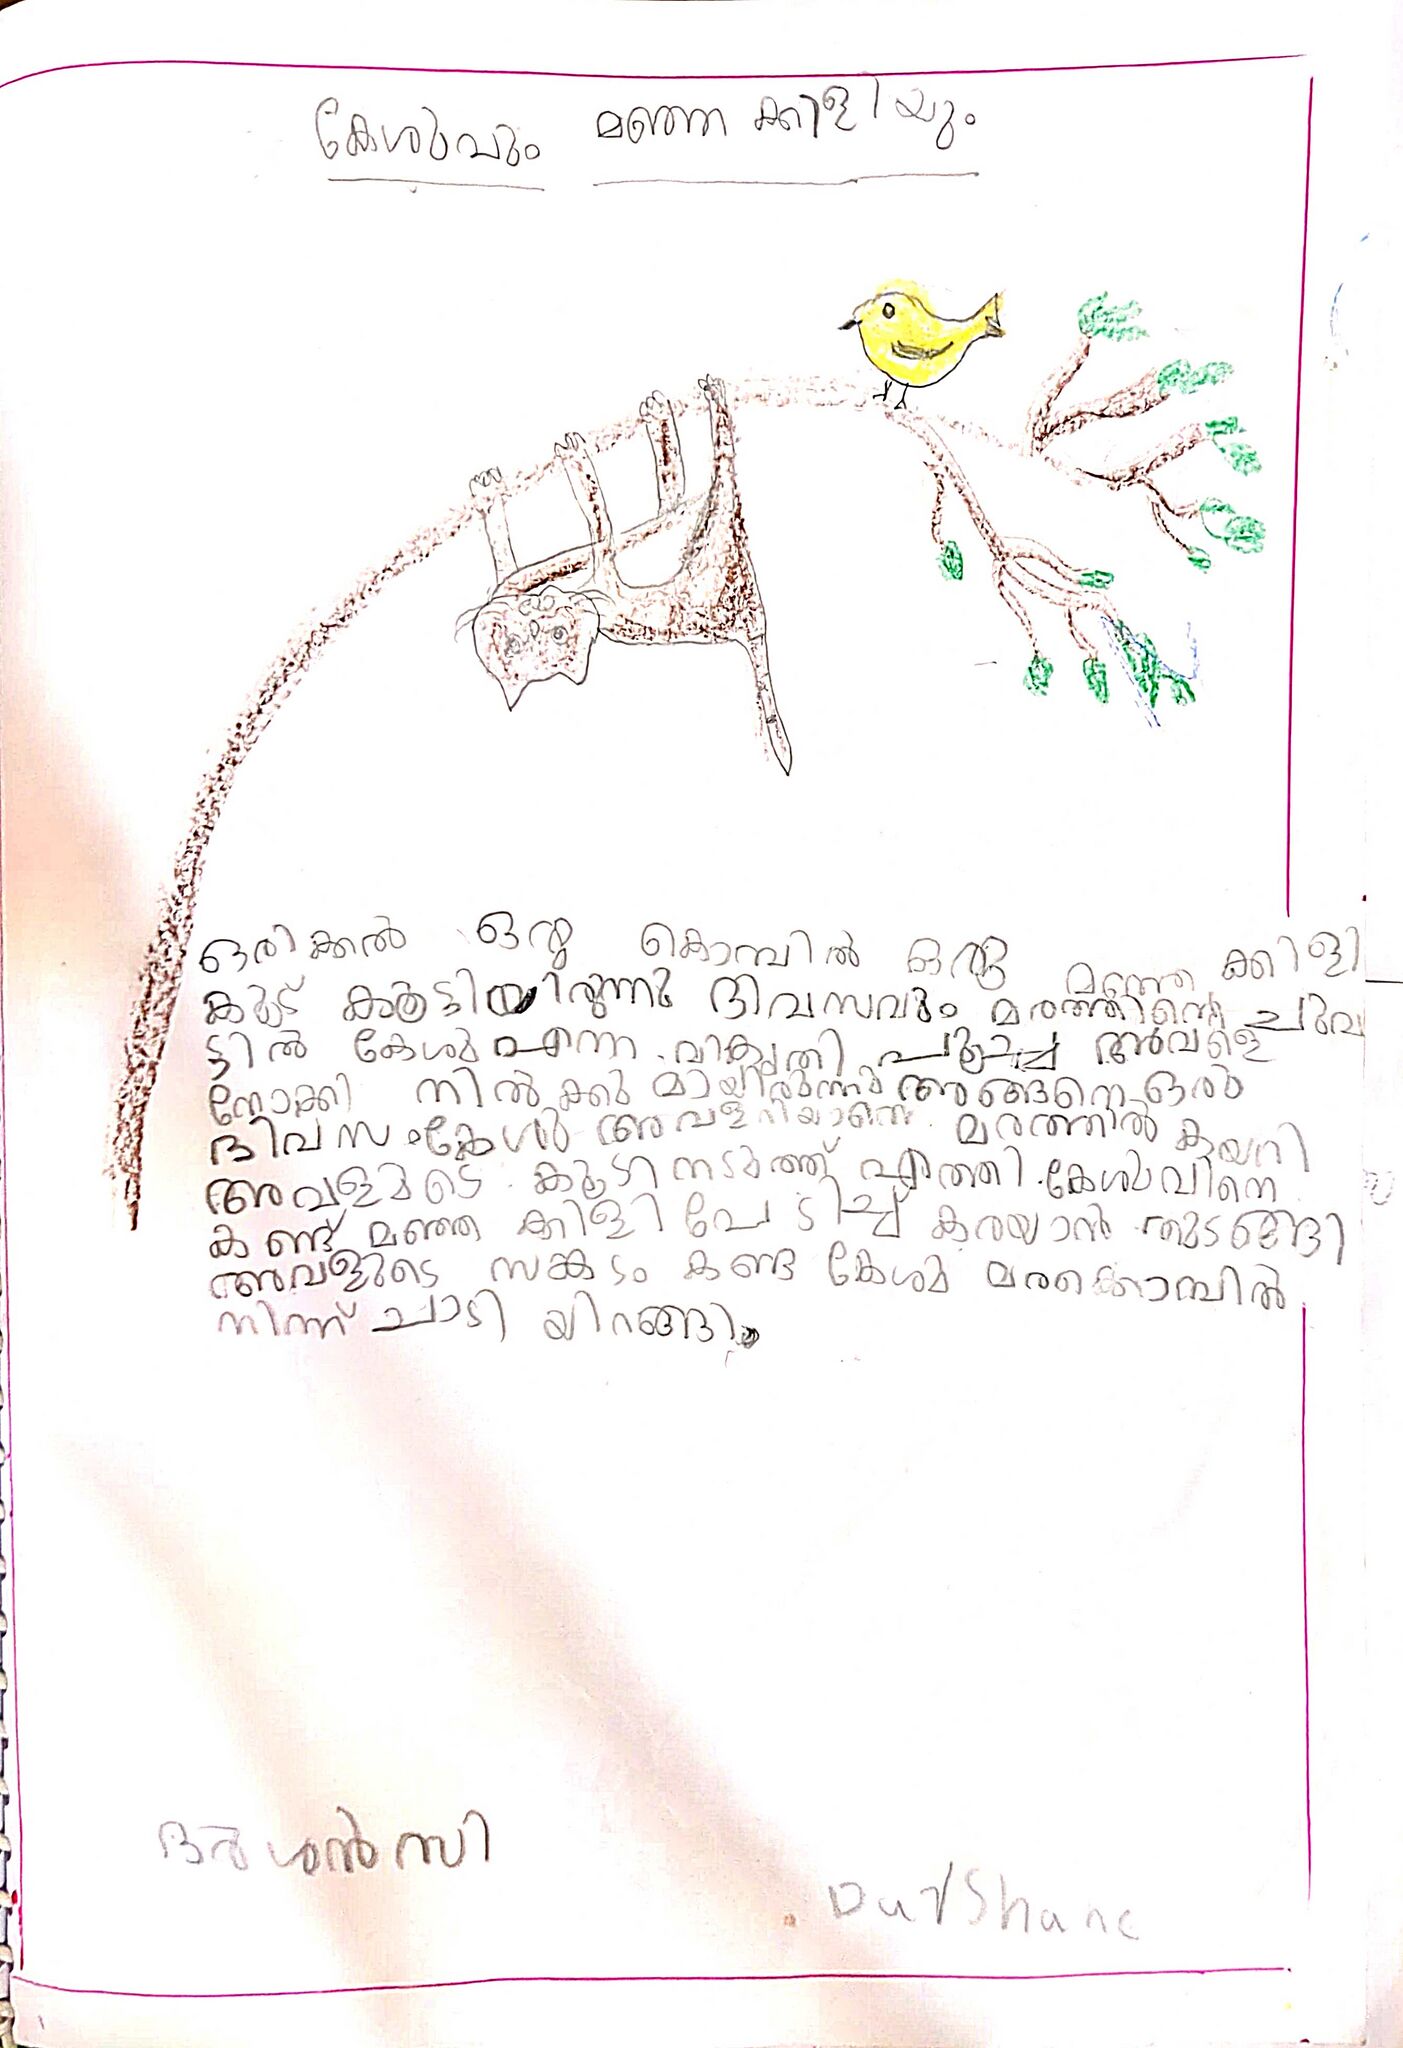 കേശുവും മഞ്ഞ ക്കിളിയും
ഒരിക്കൽ ഒരു കൊമ്പിൽ ഒരു മഞ്ഞ ക്കിളി
കൂട് കൂട്ടിയിരുന്നു ദിവസവും മരത്തിന്റെ ചുവ
ട്ടിൽ കേശു എന്ന വികൃതി പൂച്ച അവളെ
നോക്കി നിൽക്കു മായിരുന്നു അങ്ങനെ ഒരു
ദിവസം കേശു അവളറിയാതെ മരത്തിൽ കയറി
അവളുടെ കൂടിനടുത്ത് എത്തി. കേശുവിനെ
കണ്ട് മഞ്ഞ ക്കിളി പേടിച്ച് കരയാൻ തുടങ്ങി
അവളുടെ സങ്കടം കണ്ട കേശു മരക്കൊമ്പിൽ
നിന്ന് ചാടി യിറങ്ങി.
ദർശൻ സി